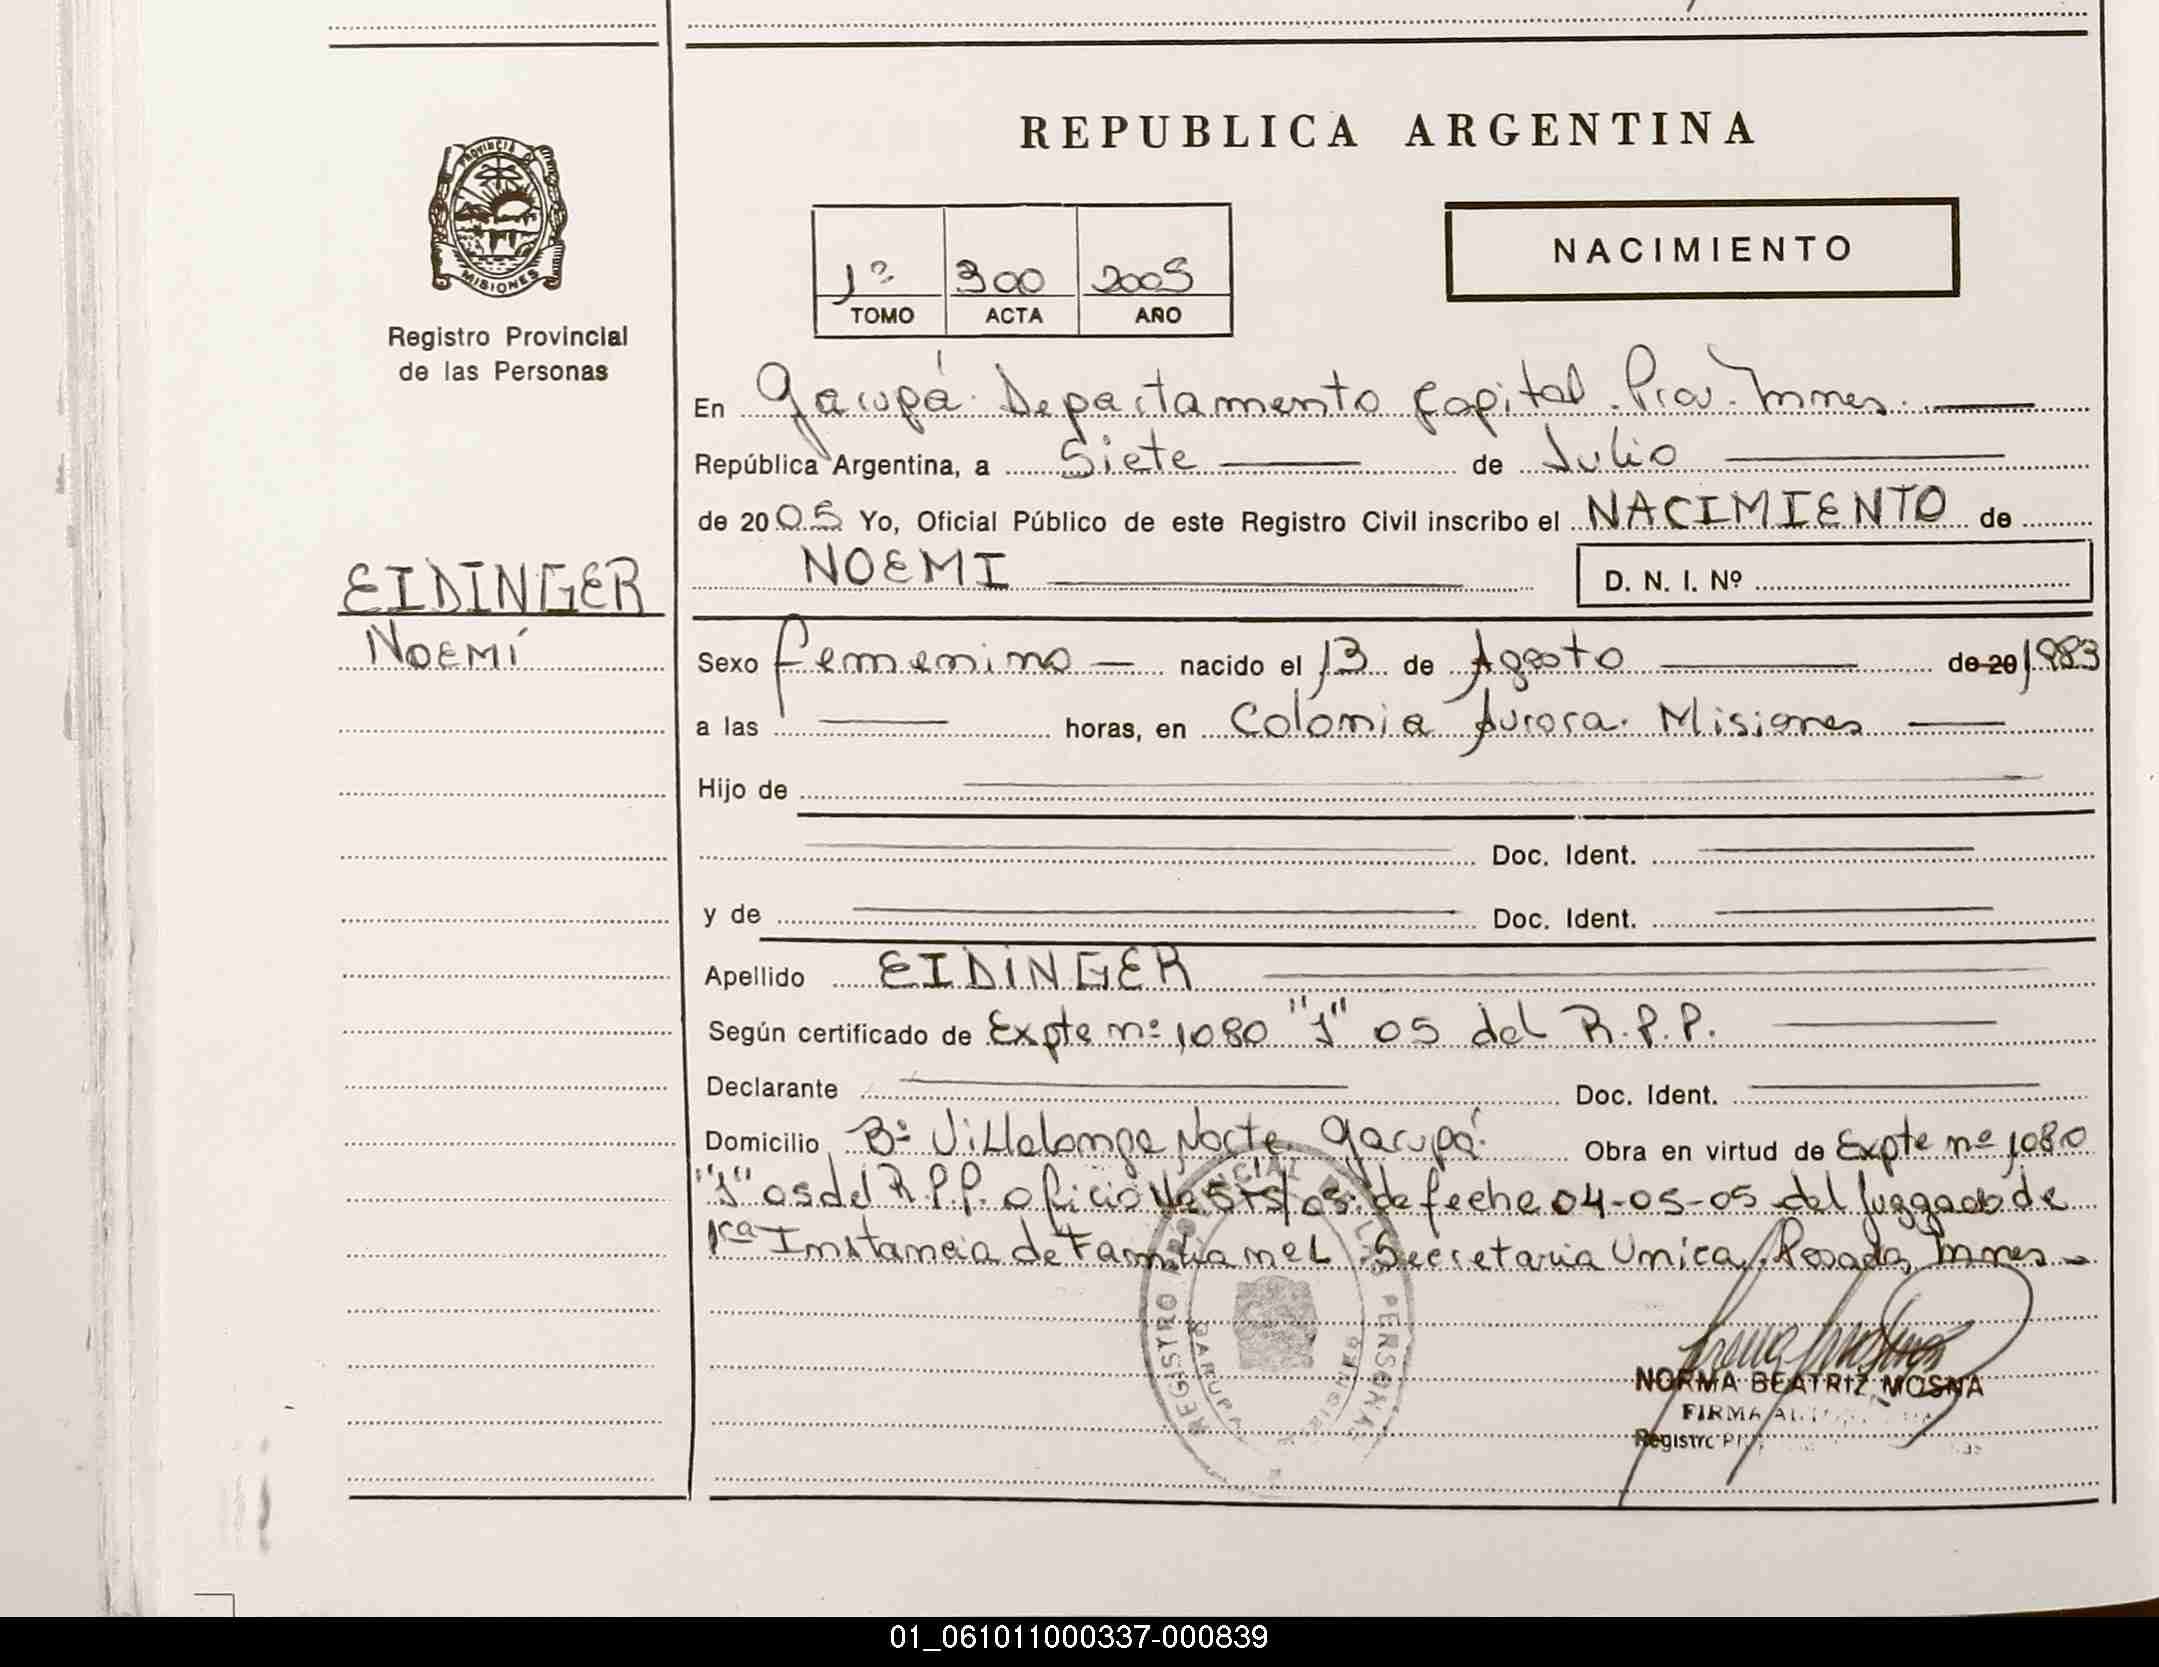 REPUBLICA ARGENTINA
PROVINCIA D MISIONES
Registro Provincial
de las Personas
1º 300 2005
TOMO ACTA AÑO
NACIMIENTO
En Garupá Departamento Capital. Prov. Mnes.
República Argentina, a Siete de Julio
de 20 05 Yo, Oficial Público de este Registro Civil inscribo el NACIMIENTO de
NOEMI D. N. I. Nº
EIDINGER
NOEMÍ
Sexo femenino nacido el 13 de Agosto de 20 1983
a las horas, en Colonia Aurora. Misiones
Hijo de
Doc. Ident.
y de Doc. Ident.
Apellido EIDINGER
Según certificado de Expte nº 1080 "J" 05 del R.P.P.
Declarante Doc. Ident.
Domicilio Bº Villalonga Norte Garupá. Obra en virtud de Expte nº 1080
"J" 05 del R.P.P. oficio Nº /05 de fecha 04-05-05 del Juzgado de
1ra Instancia de Familia Secretaria Unica, Posadas Mnes
REGISTRO PROVINCIAL DE LAS PERSONAS
GARUPA MISIONES
NORMA BEATRIZ MOSNA
FIRMA
Registro
01_061011000337-000839